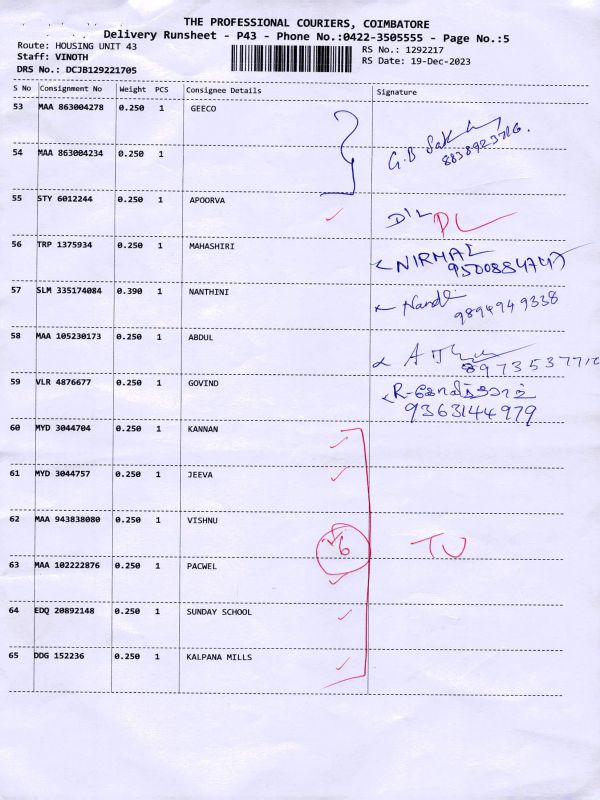 THE PROFESSIONAL COURIERS, COIMBATORE
Delivery Runsheet - P43 - Phone No.:0422-3505555 - Page No.:5
Route: HOUSING UNIT 43
RS No.: 1292217
Staff: VINOTH
RS Date: 19-Dec-2023
DRS No.: DCJB129221705
S No Consignment No Weight PCS Consignee Details Signature
53 MAA 863004278 0.250 1 GEECO
54 MAA 863004234 0.250 1
G.B
55 STY 6012244 0.250 1 APOORVA
D/L DL
56 TRP 1375934 0.250 1 MAHASHIRI
NIRMAL
57 SLM 335174084 0.390 1 NANTHINI
9894949338
58 MAA 105230173 0.250 1 ABDUL
59 VLR 4876677 0.250 1 GOVIND
9363144979
60 MYD 3044704 0.250 1 KANNAN
61 MYD 3044757 0.250 1 JEEVA
62 MAA 943838080 0.250 1 VISHNU
6 TU
63 MAA 102222876 0.250 1 PACWEL
64 EDQ 20892148 0.250 1 SUNDAY SCHOOL
65 DDG 152236 0.250 1 KALPANA MILLS